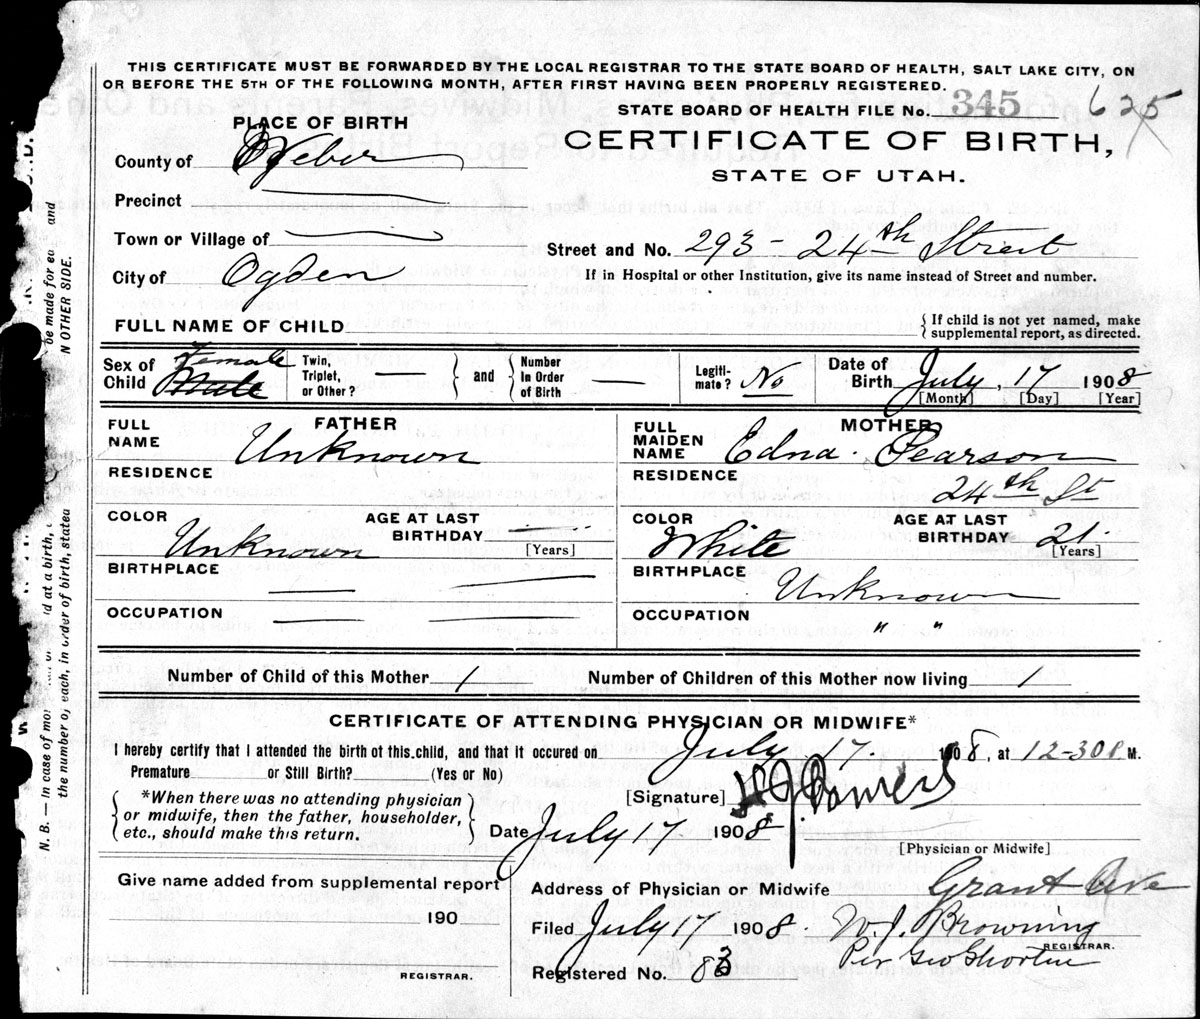 THIS CERTIFICATE MUST BE FORWARDED BY THE LOCAL REGISTRAR TO THE STATE BOARD OF HEALTH, SALT LAKE CITY, ON
OR BEFORE THE 5TH OF THE FOLLOWING MONTH, AFTER FIRST HAVING BEEN PROPERLY REGISTERED.
STATE BOARD OF HEALTH FILE No. 345 625
PLACE OF BIRTH
CERTIFICATE OF BIRTH,
STATE OF UTAH.
County of Weber
Precinct
Town or Village of
Street and No. 293 - 24th Street
City of Ogden
If in Hospital or other Institution, give its name instead of Street and number.
FULL NAME OF CHILD
{ If child is not yet named, make
supplemental report, as directed.
Sex of Child Female Male
Twin, Triplet, or Other? — } and { Number In Order of Birth —
Legiti-mate? No
Date of Birth July, 17 1908
[Month] [Day] [Year]
FATHER
FULL NAME Unknown
RESIDENCE
COLOR Unknown
AGE AT LAST BIRTHDAY [Years]
BIRTHPLACE
OCCUPATION
MOTHER
FULL MAIDEN NAME Edna Pearson
RESIDENCE 24th St
COLOR White
AGE AT LAST BIRTHDAY 21 [Years]
BIRTHPLACE Unknown
OCCUPATION " "
Number of Child of this Mother 1 Number of Children of this Mother now living 1
CERTIFICATE OF ATTENDING PHYSICIAN OR MIDWIFE*
I hereby certify that I attended the birth of this child, and that it occured on July 17. 1908, at 12-30 P. M.
Premature or Still Birth? (Yes or No)
{ *When there was no attending physician
or midwife, then the father, householder,
etc., should make this return. }
[Signature]
Date July 17 1908.
[Physician or Midwife]
Give name added from supplemental report
190
REGISTRAR.
Address of Physician or Midwife Grant Ave
Filed July 17 1908. W. J. Browning
REGISTRAR.
Per Geo
Registered No. 83
N. B. — In case of
at a birth,
be made for ea and
the number of each, in order of birth, stated
N OTHER SIDE.